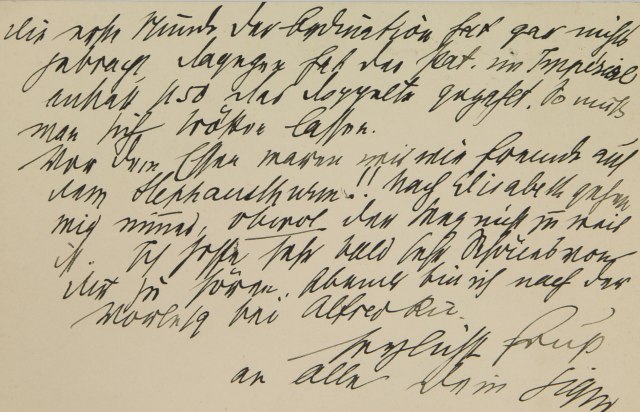 Die erste Stunde der Subvention hat gar nichts
gebracht, dagegen hat das Pat. im Imperial
anstatt 450 das doppelte gezahlt. So muß
man sich trösten lassen.
Vor dem Essen waren wir wie Fremde auf
dem Stephansthurm!! Nach Elisabeth gehen
wir nicht, obwol der Weg nicht zu weit
ist. Ich hoffe sehr bald sehr Schönes von
dir zu hören. Abends bin ich nach der
Vorlesg bei Alfred Ri.
herzlichst Gruß
an Alle Dein Sigm